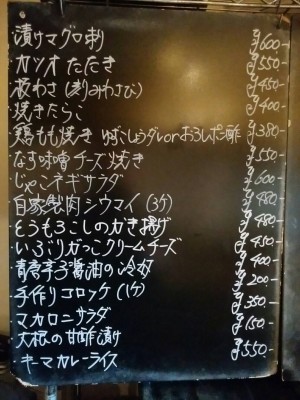 漬けマグロ刺 ¥600-
カツオたたき ¥550-
板わさ(刻みわさび) ¥450-
焼きたらこ ¥400-
鶏もも焼き ゆずこしょうダレorおろしポン酢 ¥380-
なす味噌チーズ焼き ¥550-
じゃこネギサラダ ¥600-
自家製肉シウマイ(3ケ) ¥480-
とうもろこしのかき揚げ ¥480-
いぶりがっこクリームチーズ ¥450-
青唐辛子醤油の冷奴 ¥400-
手作りコロッケ(1ケ) ¥200-
マカロニサラダ ¥350-
大根の甘酢漬け ¥150-
キーマカレーライス ¥550-